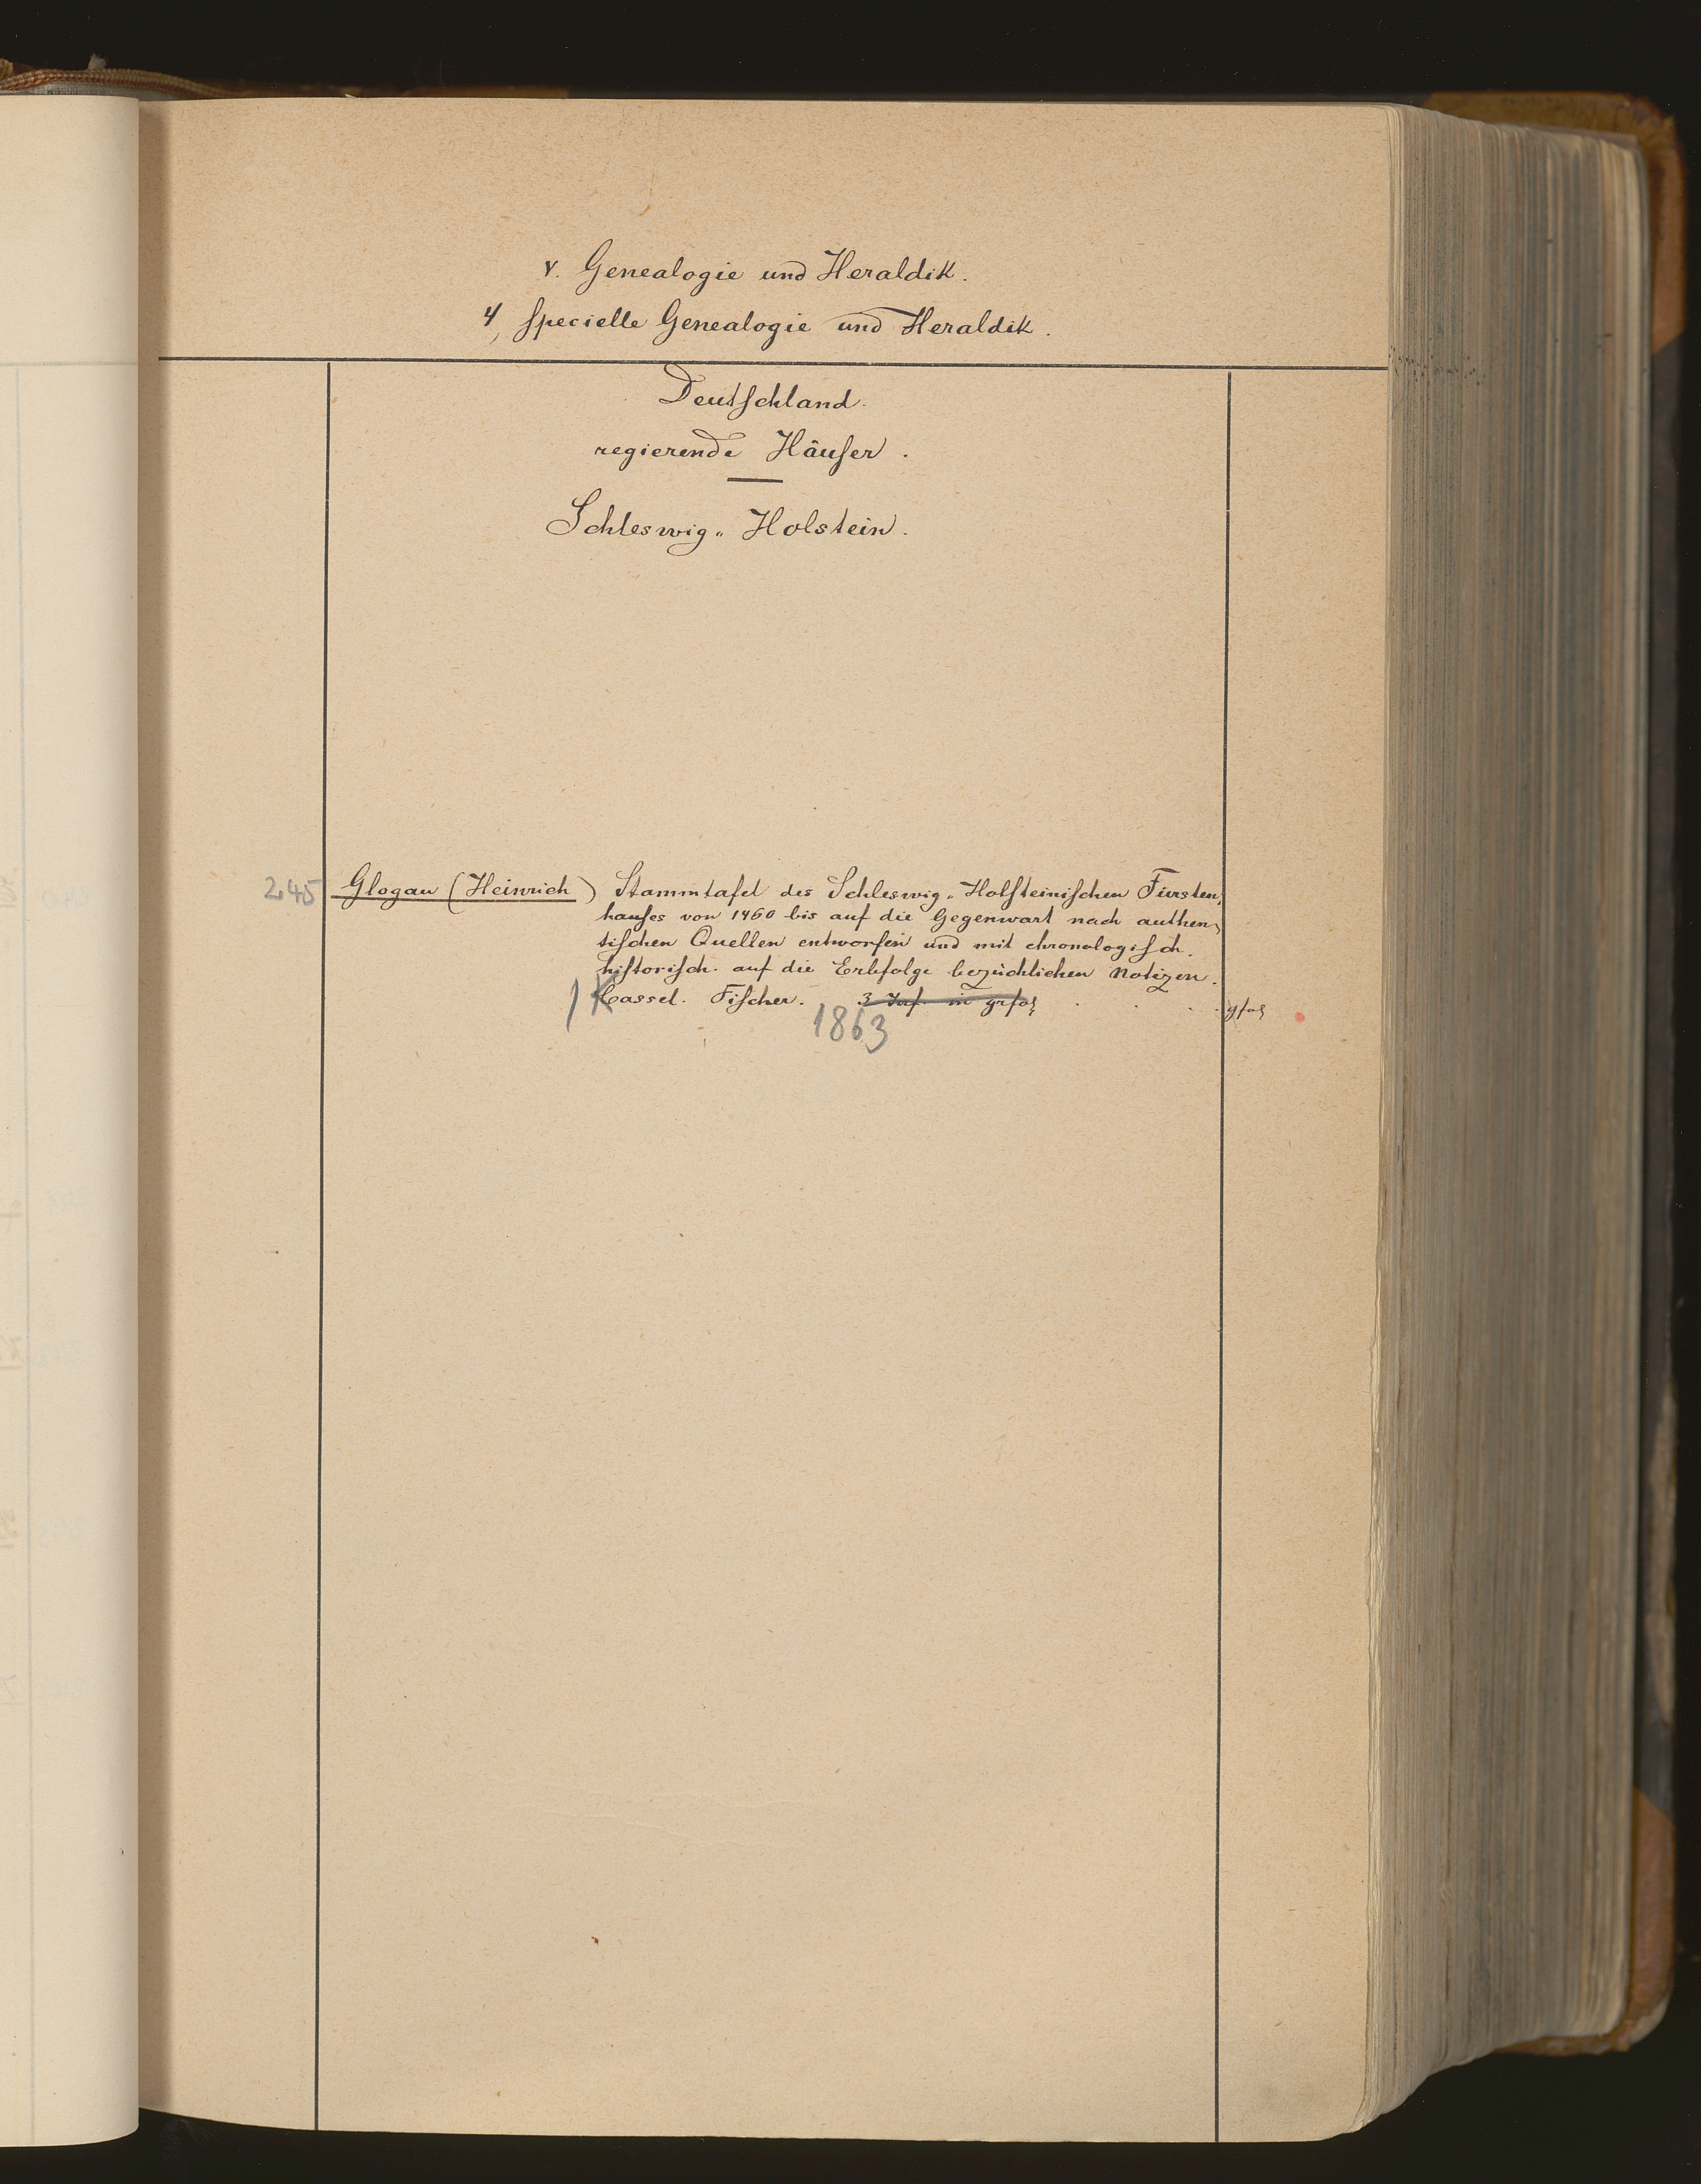 V. Genealogie und Heraldik.
4, specielle Genealogie und Heraldik.
Deutschland.
regierende Häuser.
Schleswig-Holstein.
245 Glogau (Heinrich) Stammtafel des Schleswig-Holsteinischen Fürsten-
hauses von 1460 bis auf die Gegenwart nach authen-
tischen Quellen entworfen und mit chronologisch-
historisch. auf die Erbfolge bezüchlichen Notizen.
Cassel. Fischer. 3 in grfol gfol
1863